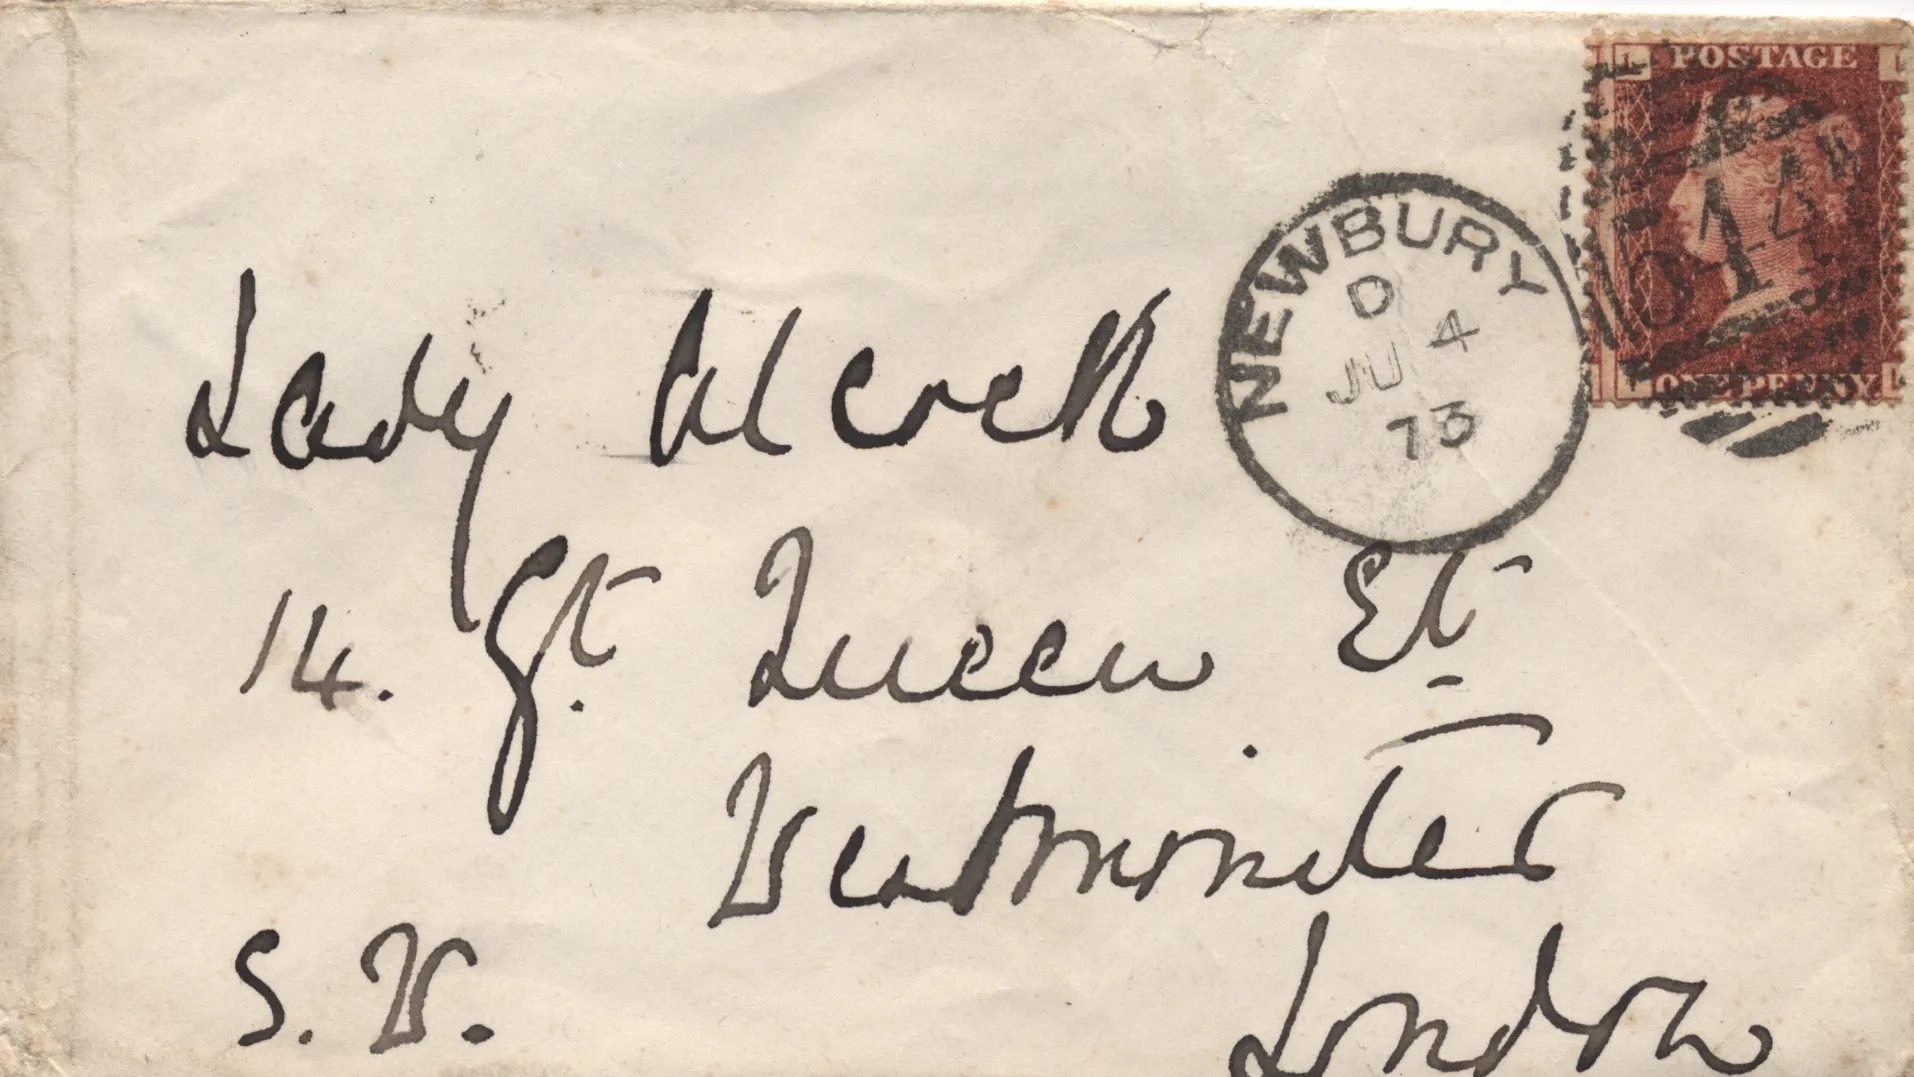 POSTAGE
L L
514
ONE PENNY
L L
NEWBURY
D
JU 4
73
Lady Alcock
14. Gt. Queen St
Westminster
S. W.
London